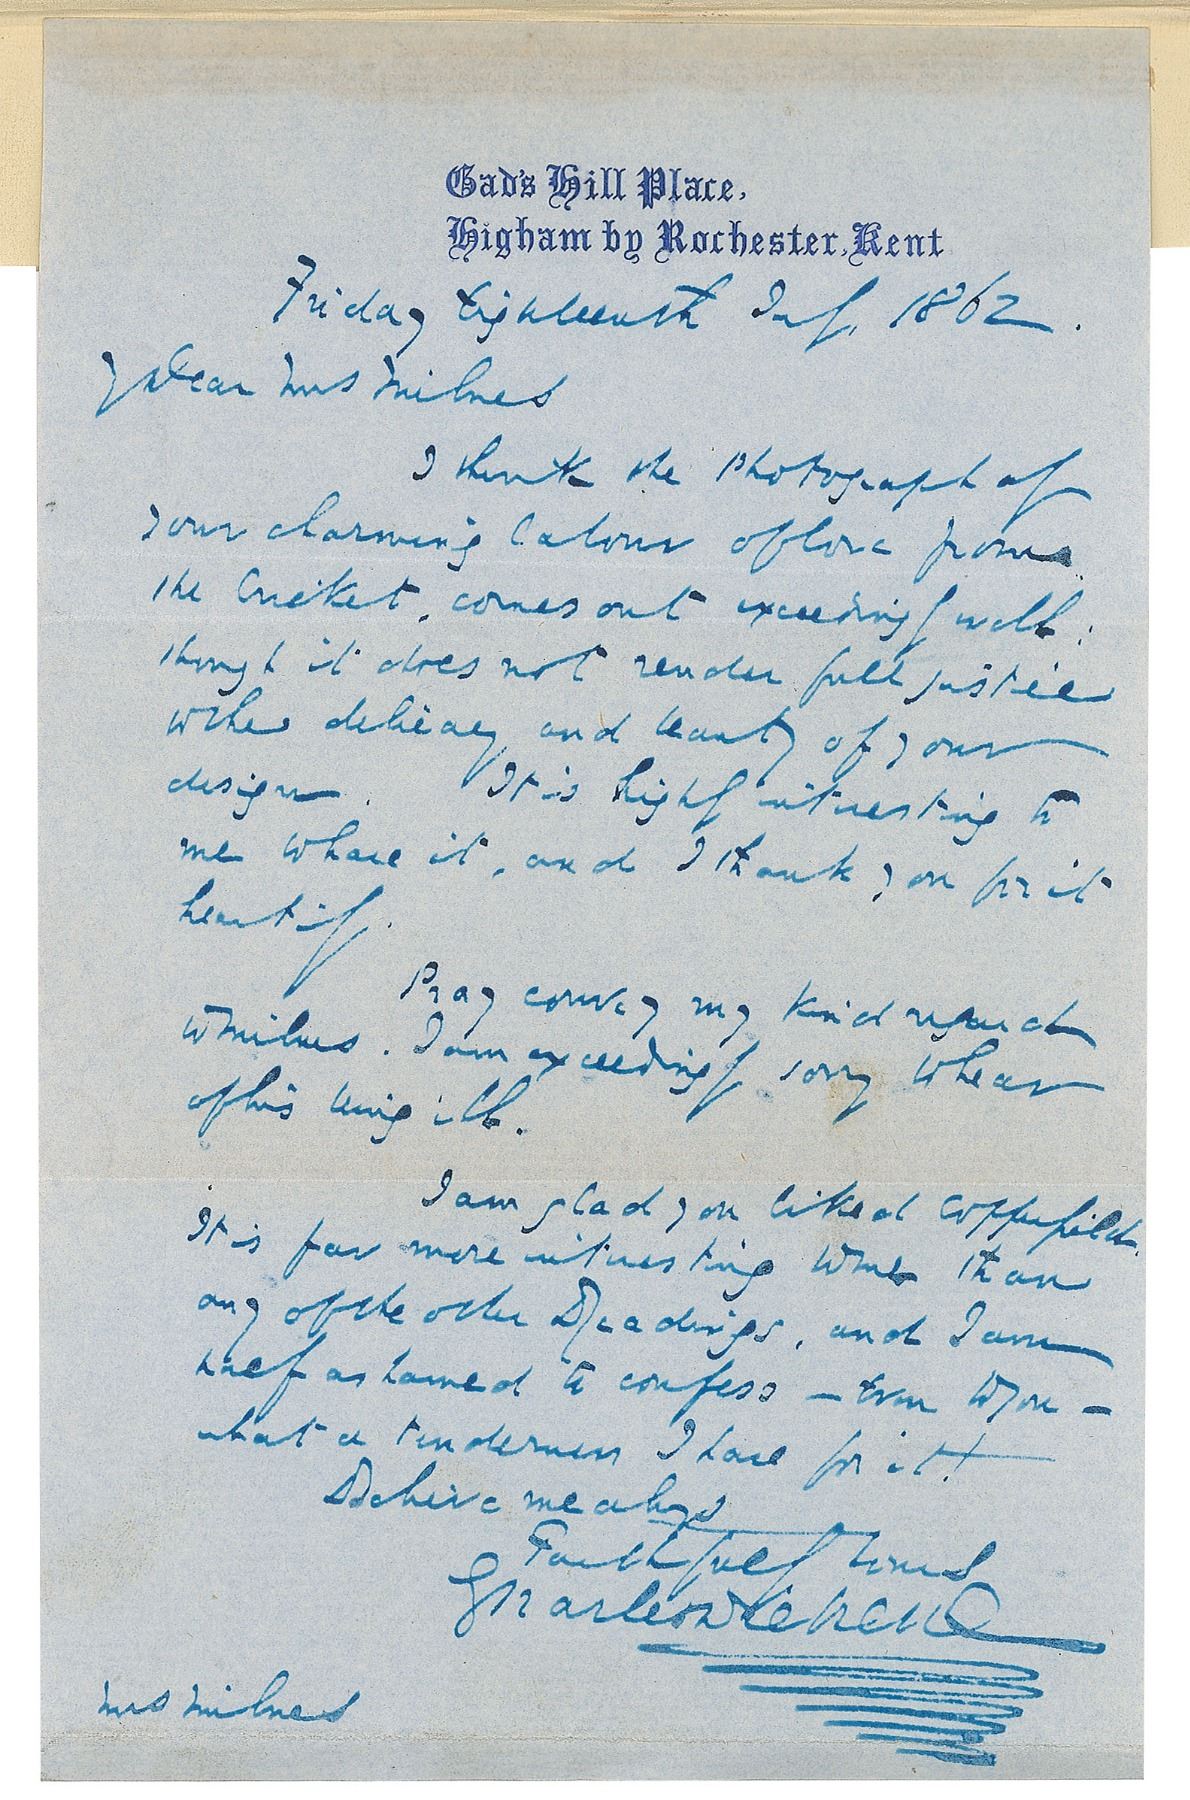 Gad's Hill Place,
Higham by Rochester, Kent
Friday Eighteenth July, 1862.
My Dear Mrs Milnes
I think the Photograph of
your charming labour of love from
the Cricket, comes out exceedingly well;
though it does not render full justice
to the delicacy and beauty of your
design. It is highly interesting to
me to have it, and I thank you for it
heartily.
Pray convey my kind regard
to Milnes. I am exceedingly sorry to hear
of his being ill.
I am glad you liked Copperfield.
It is far more interesting to me than
any of the other Readings, and I am
half ashamed to confess – even to you –
what a tenderness I have for it!
Believe me always
Faithfully Yours
Charles Dickens
Mrs Milnes